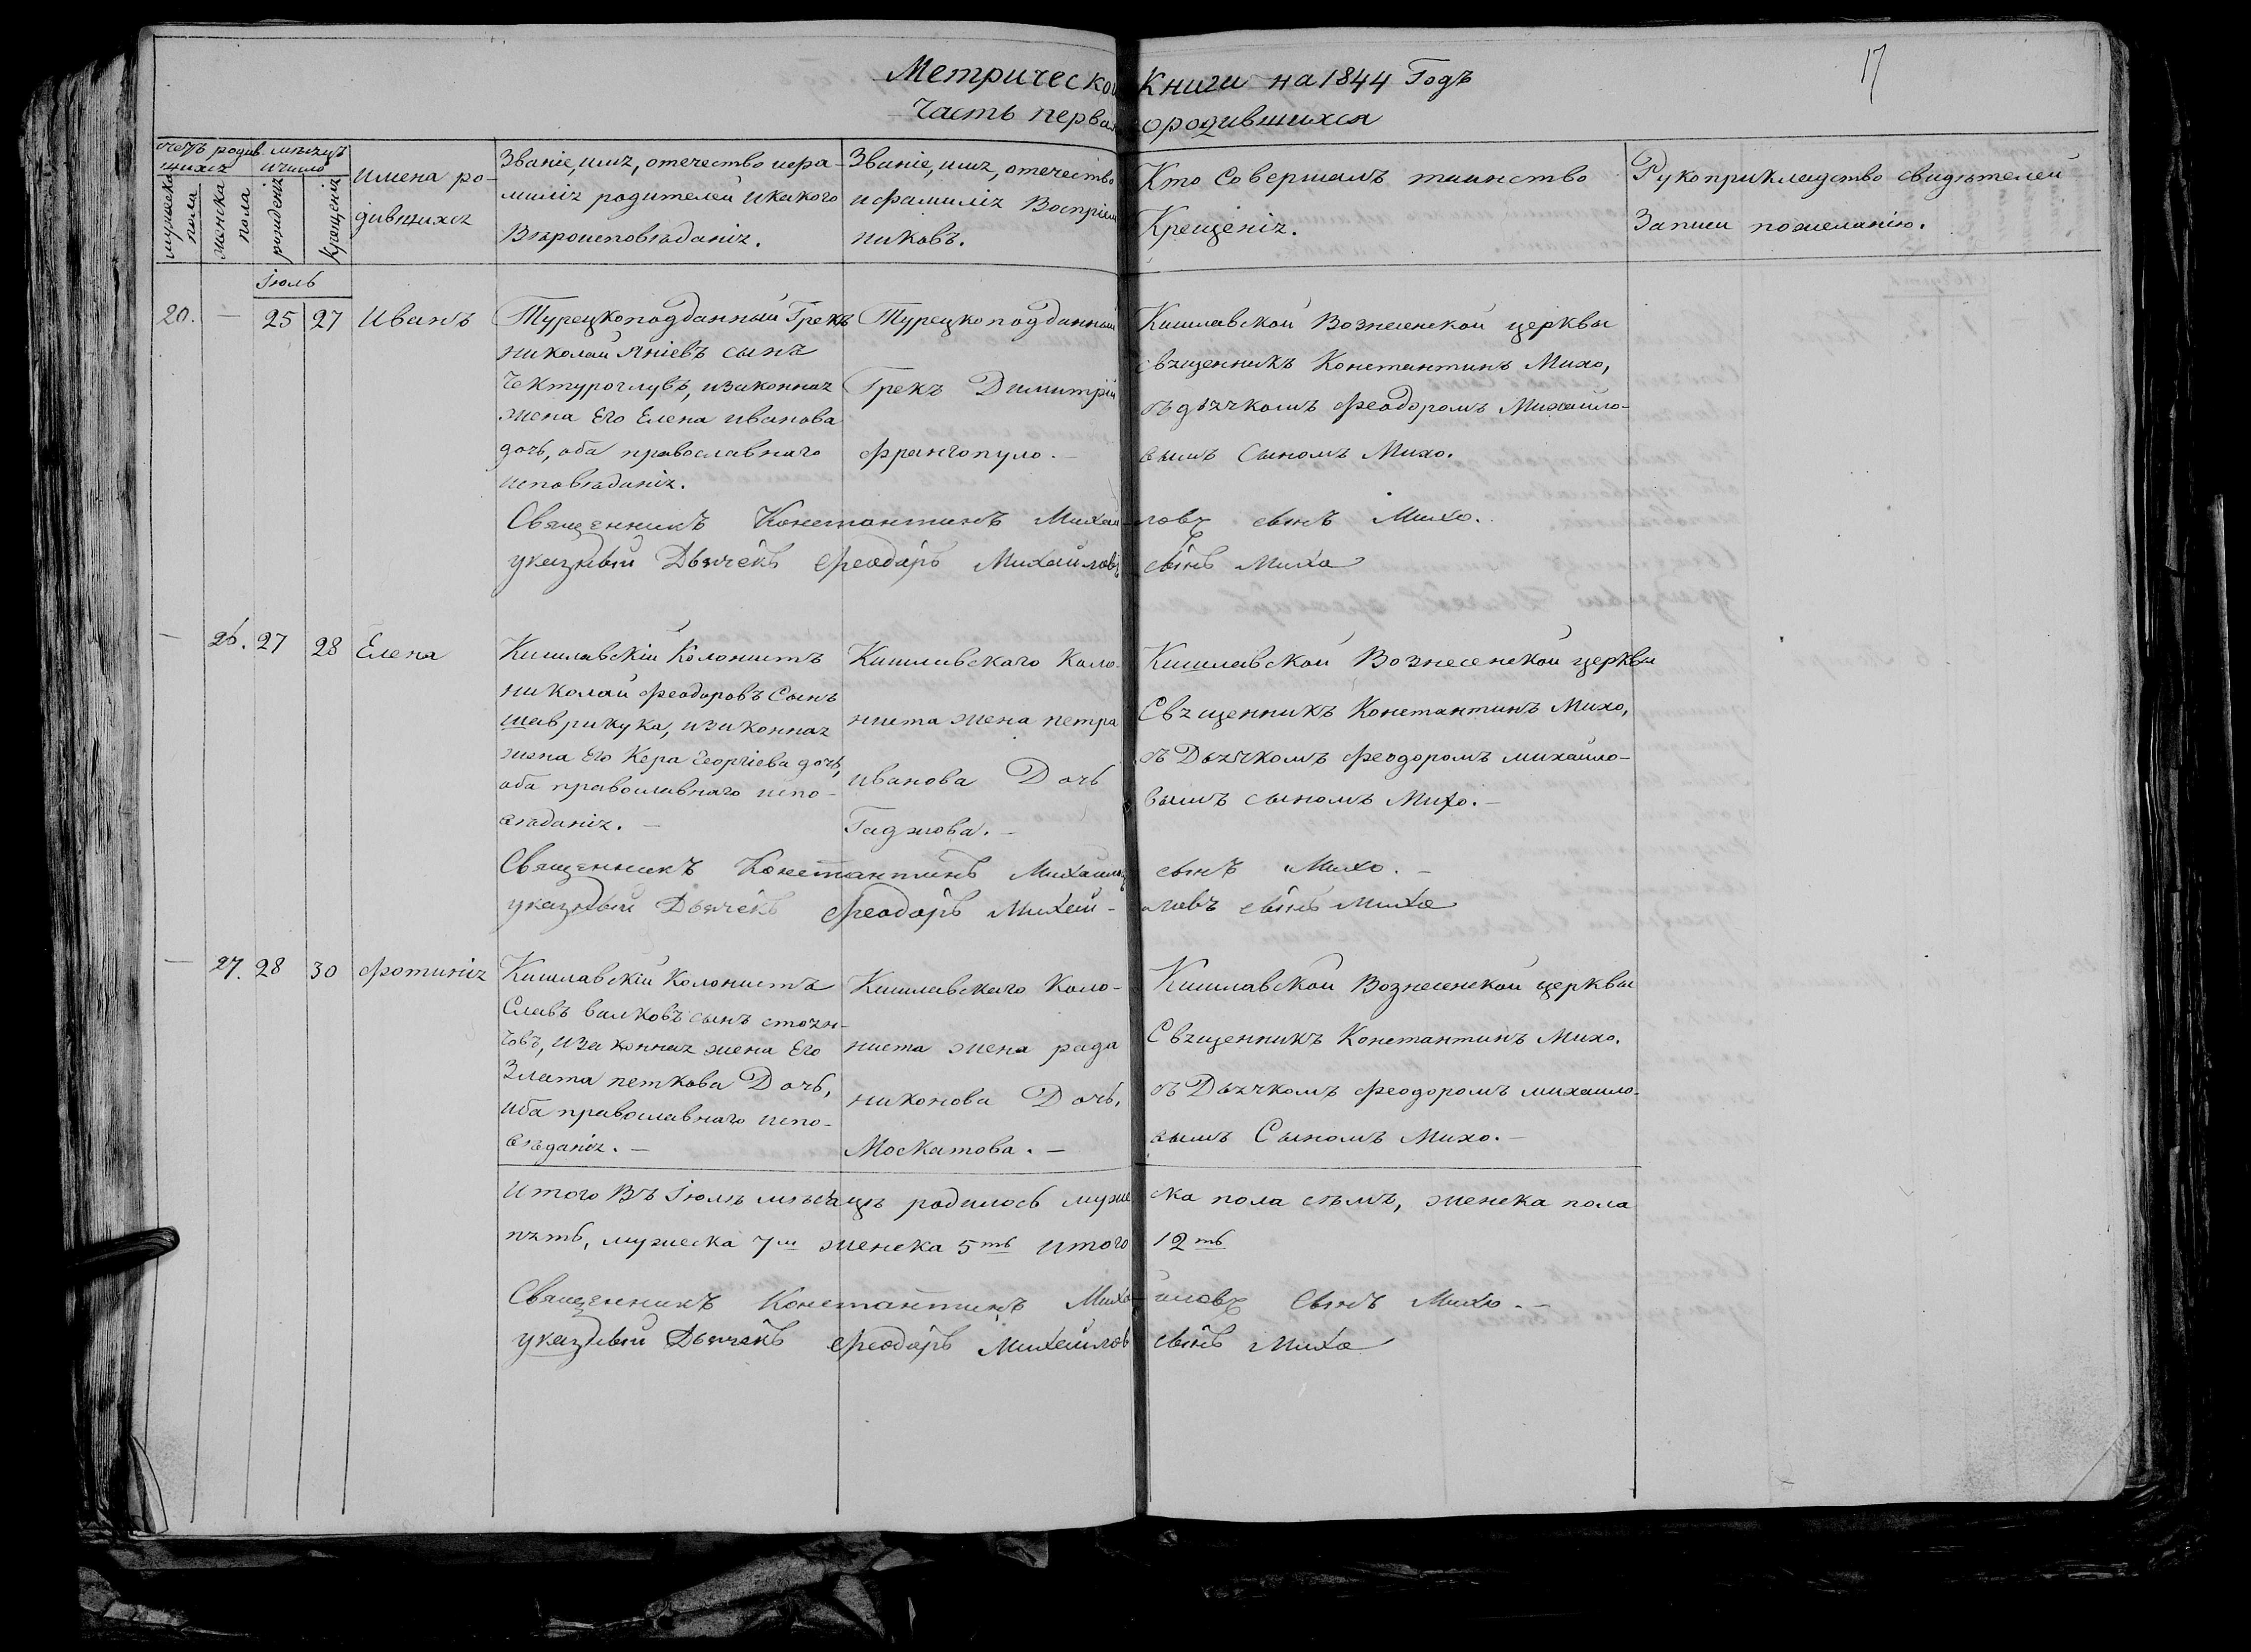 17
Метрической Книги на 1844 Годъ
Часть первая ородившихся
счетъ родив- мѣсяцъ
шихся ичисло
мужеска пола
женска пола
рожденія
крещенія
имена ро-
дившихся
Званіе, имя, отечество ифа-
милія родителей икакого
Вѣроисповѣданія.
Званіе, имя, отечество
ифамилія Воспріем
никовъ.
Кто Совершалъ таинство
Крещенія.
Рукоприкладство свидѣтелей
Записи пожеланію.
Іюль
20. — 25 27 Иванъ
Турецкоподданный Грекъ
николай Яніевъ сынъ
Чектуроглувъ, изаконная
жена Его Елена иванова
дочь, оба православнаго
исповѣданія.
Турецкоподданный
Грекъ Димитрій
Франгопуло.
Кишлавской Вознесенской церквы
священникъ Константинъ Михо,
съ дьячкомъ Феодоромъ Михайло-
вымъ Сыномъ Михо.
Священникъ Константинъ Михайловъ сынъ Михо.
указный Дьячекъ Феодоръ Михайловъ сынъ Михо
— 26. 27 28 Елена
Кишлавскій Колонистъ
николай Феодоровъ Сынъ
шаврикука, изаконная
жена Его Кера Георгіева дочь,
оба православнаго испо-
вѣданія. —
Кишлавскаго Коло-
ниста жена петра
иванова Дочь
Гаджова. —
Кишлавской Вознесенской церквы
Священникъ Константинъ Михо,
съ Дьячкомъ Феодоромъ михайло-
вымъ сыномъ Михо. —
Священникъ Константинъ Михайловъ сынъ Михо. —
указный Дьячекъ Феодоръ Михай-ловъ сынъ Михо
— 27. 28 30 Фотинія
Кишлавскій Колонистъ
Славъ валковъ сынъ стоян-
човъ, изаконная жена Его
Злата петкова Дочь,
оба православнаго испо-
вѣданія. —
Кишлавскаго Коло-
ниста жена рада
никонова Дочь,
Москатова. —
Кишлавской Вознесенской церквы
Священникъ Константинъ Михо,
съ Дьячкомъ Феодоромъ михайло-
вымъ Сыномъ Михо. —
Итого Въ Іюлѣ мѣсяцѣ родилось муже ска пола сѣмъ, женска пола
пять, мужеска 7м женска 5ть итого 12ть
Священникъ Константинъ Михайловъ Сынъ Михо. —
указный Дьячекъ Феодоръ Михайлов сынъ Михо